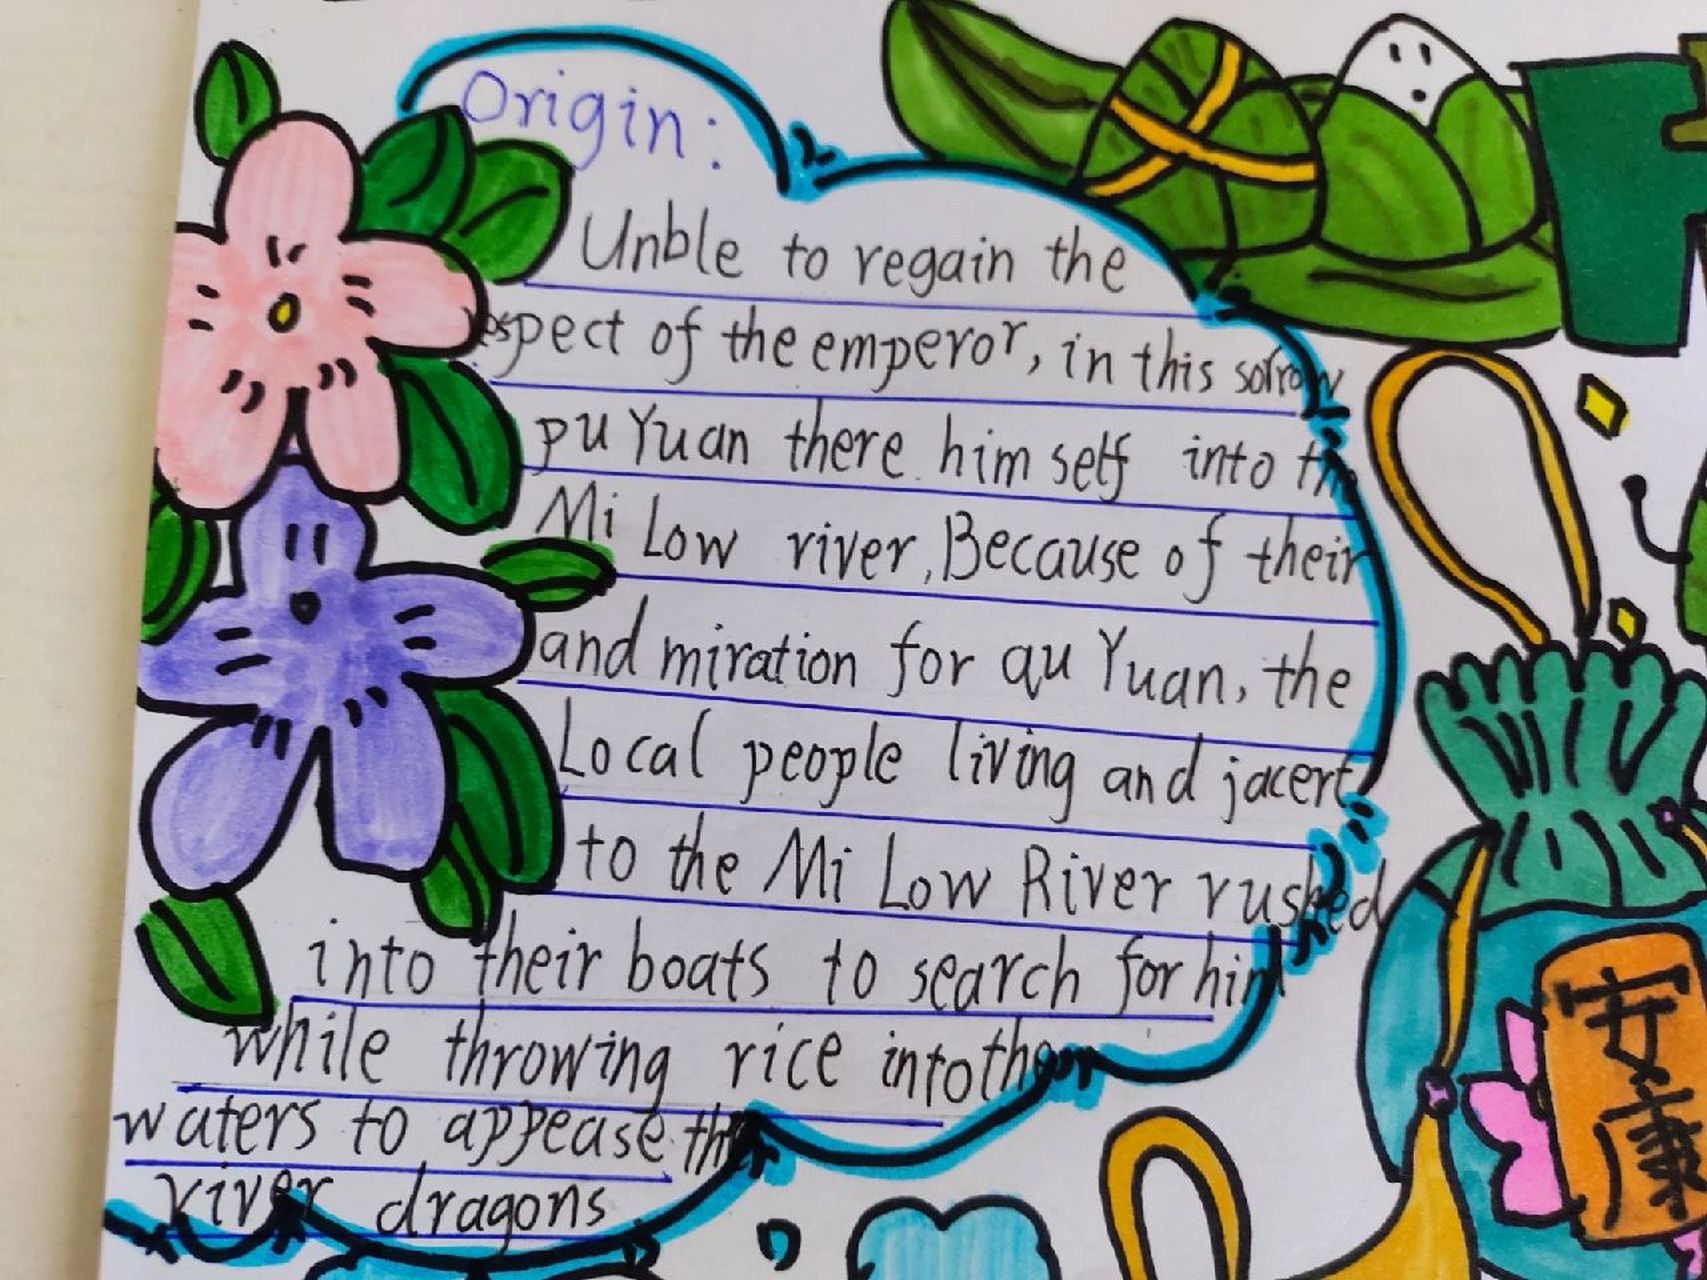 Origin:
Unble to regain the
respect of the emperor, in this sorrow
pu Yuan there him self into the
Mi Low river, Because of their
and miration for qu Yuan, the
Local people living and jacert
to the Mi Low River rushed
into their boats to search for him
while throwing rice into the
waters to appease the
river dragons
安
康